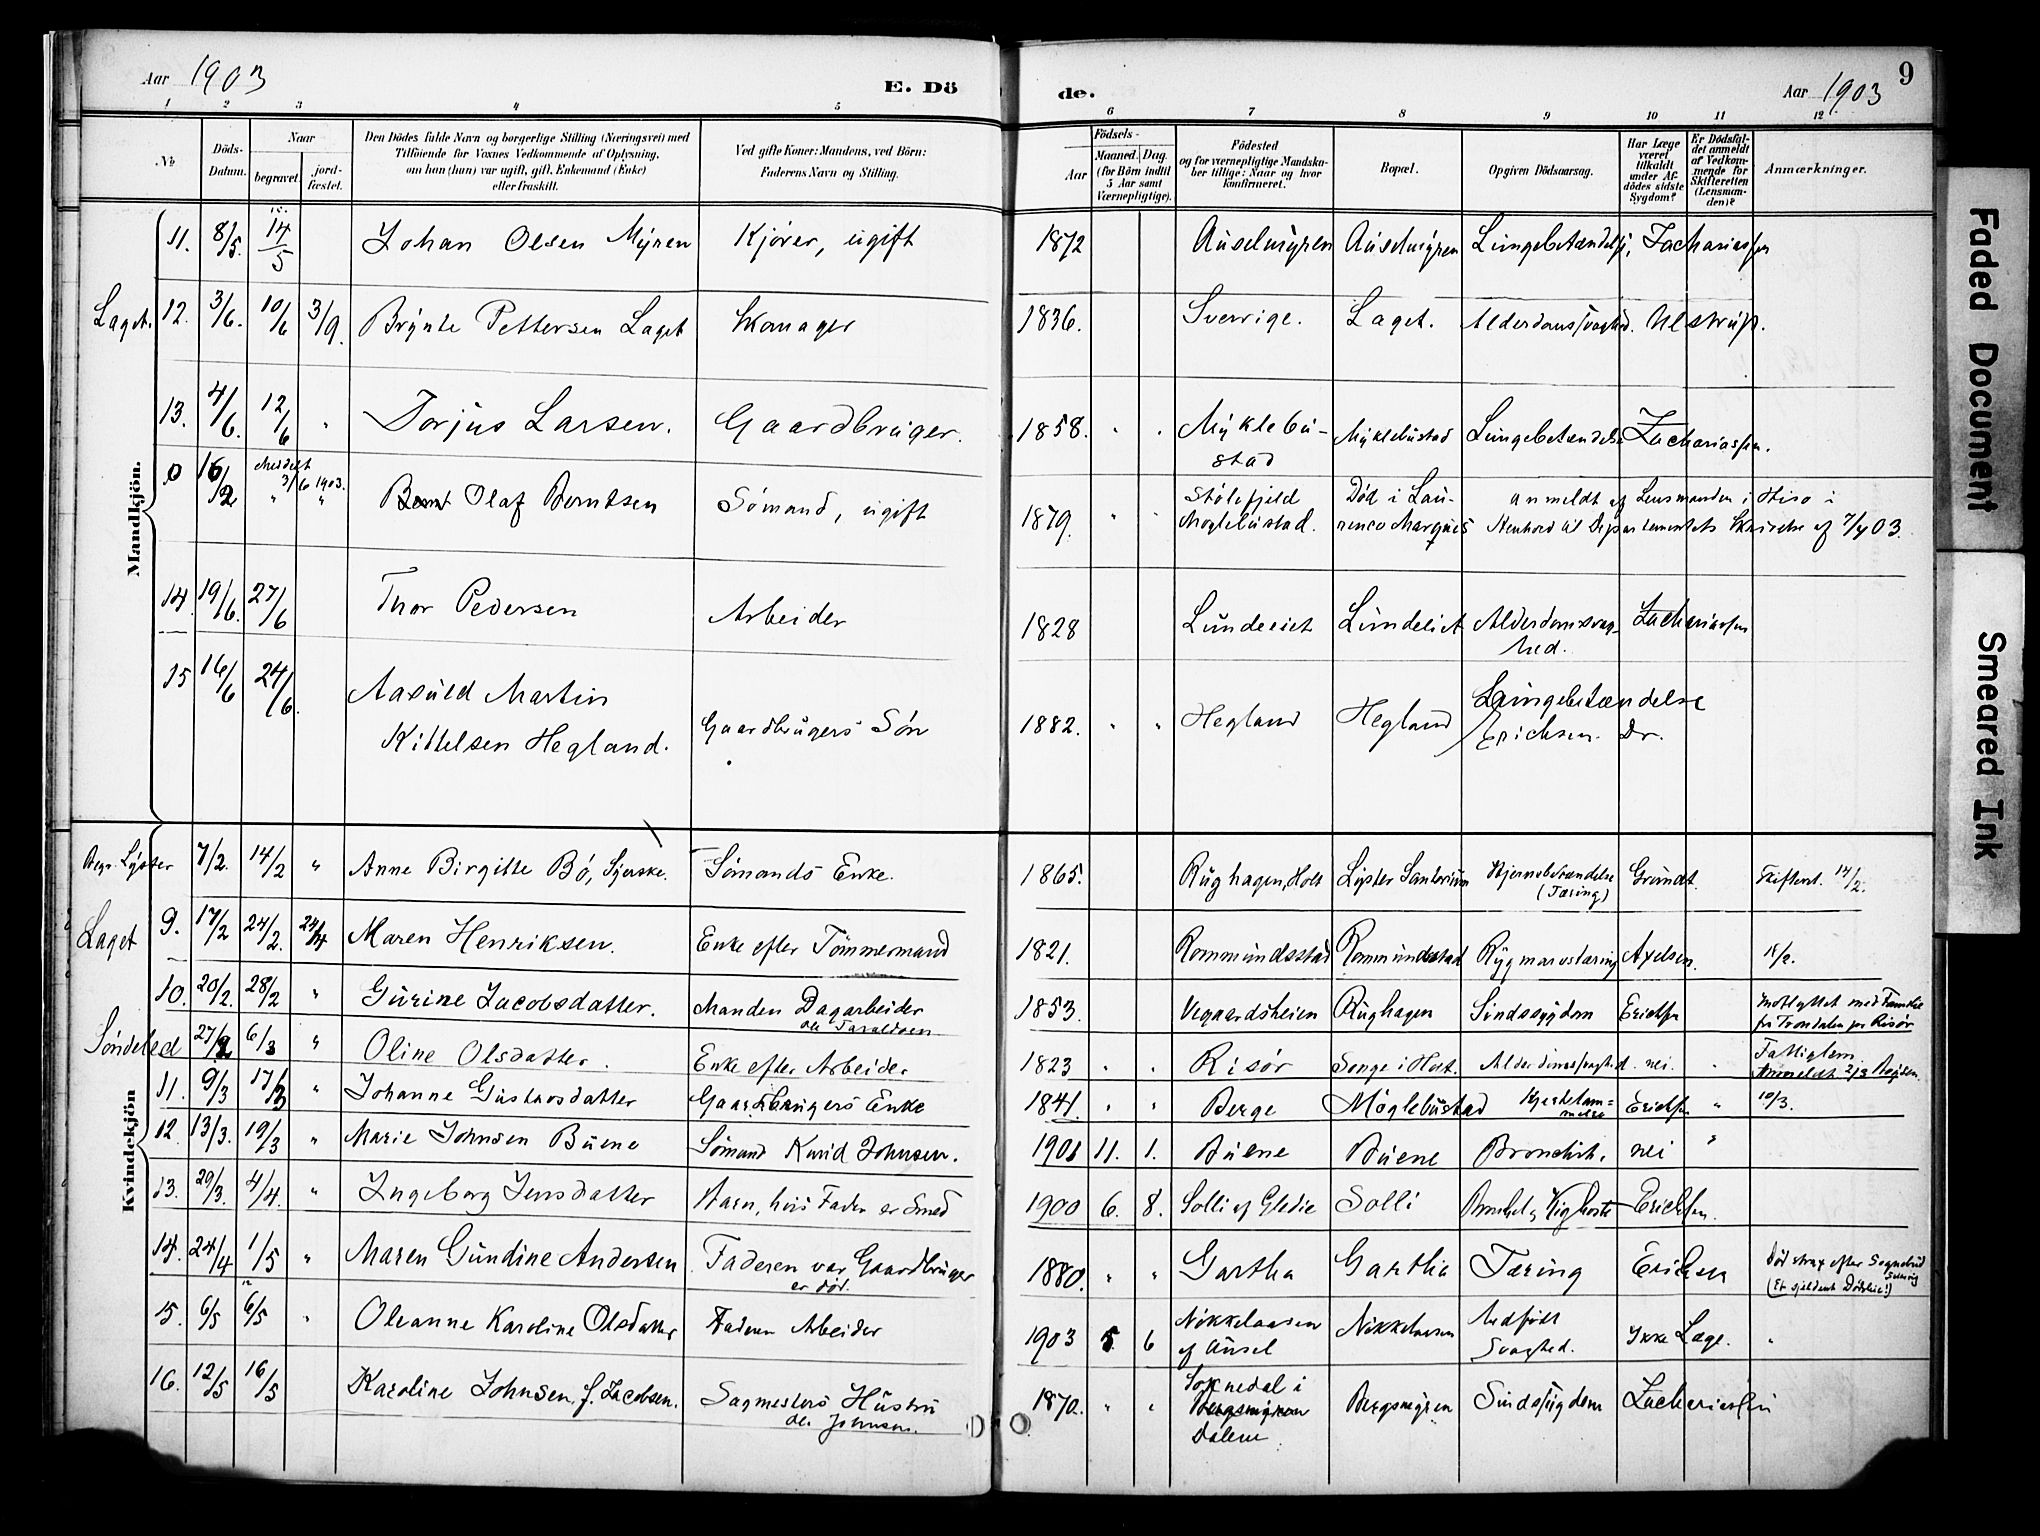 Aar 1903
E. Dö
de.
Aar 1903
9
1 2 3 4 5 6 7 8 9 10 11 12
No
Döds-Datum.
Naar
begravet.
jord-fæstet.
Den Dödes fulde Navn og borgerlige Stilling (Næringsvei) med
Tilföiende for Voxnes Vedkommende af Oplysning,
om han (hun) var ugift, gift, Enkemand (Enke)
eller fraskilt.
Ved gifte Koner: Mandens, ved Börn:
Faderens Navn og Stilling.
Födsels-
Aar
Maaned. Dag.
(for Börn indtil
5 Aar samt
Værnepligtige).
Födested
og for værnepligtige Mandska-
ber tillige: Naar og hvor
konfirmeret.
Bopæl.
Opgiven Dödsaarsag.
Har Læge
været
tilkaldt
under Af-
dödes sidste
Sygdom?
Er Dödsfal-
det anmeldt
af Vedkom-
mende for
Skifteretten
(Lensman-
den)?
Anmærkninger.
Mandkjön.
11. 8/5. 14/5 Johan Olsen Myren Kjører, ugift 1872 Auselmyren Auselmyren Lungebetændelse, Zachariassen
Laget. 12. 3/6. 10/6 3/9. Brynte Pettersen Laget Skomager 1836. Sverrige. Laget. Alderdomssvaghed. Ulstrup.
13. 4/6. 12/6 " Torjus Larsen. Gaardbruger. 1858. " " Myklebu-
stad Myklebustad Lungebetændelse Zachariassen.
0 16/2 Meddelt 3/6 1903. " " Olaf Berntsen Sømand, ugift 1879. " " Stølefjeld
Moglebustad. Død i Lau-
renco Marques anmeldt af Lensmanden i Hisø i
Henhold til Departementets Skrivelse af 7/4 03.
14. 19/6. 27/6 Thor Pedersen Arbeider 1828 Lundeliet Lundeliet Alderdomssvag-
hed. Zachariassen
15 16/6 24/6. Aasuld Martin
Kittelsen Hegland. Gaardbrugers Søn 1882. " " Hegland Hegland Lungebetændelse
Erichsen. Dr.
Kvindekjön
Begr. Lyster 7/2. 14/2 " Anne Birgitte Bø, Syerske. Sømands Enke. 1865. Rughagen, Holt Lyster Hjernebetændelse
(Tæring) Grundt. Skifteret. 14/2.
Laget 9. 17/2 24/2. 24/4 Maren Henriksen. Enke efter Tømmermand 1821. Rommundsstad Rommundsstad Rygmarvstæring Axelsen. 18/2.
10. 20/2. 28/2 " Gurine Jacobsdatter. Manden Dagarbeider
Ole Taraldsen 1853. Vegaardsheien Rughagen Sindssygdom Erichsen Indflyttet med Familie
fra Trondalen pr Risør
Søndeled 27/2 6/3 " Oline Olsdatter. Enke efter Arbeider 1823 " " Risør Songe i Holt. Alderdomssvaghed. nei. " Fattiglem.
Anmeldt 2/3
11. 9/3 17/3 " Johanne Gustavsdatter Gaardbrugers Enke 1841. " " Berge Møglebustad Hjertelam-
melse Erichsen " 10/3.
12. 13/3. 19/3 " Marie Johnsen Buene Sømand Knud Johnsen. 1901 11. 1. Buene Buene Bronchit. nei "
13. 29/3. 4/4. " Ingeborg Jensdatter Barn, hvis Fader er Smed 1900 6. 8. Solli af Gledie Solli Kighoste Erichsen.
14. 24/4 1/5 " Maren Gundine Andersen Faderen var Gaardbruger
er død. 1880. " " Gartha Gartha Tæring Erichsen Død strax efter Sognebud
(Et sjeldent Dødsleie!)
15. 6/5 6/5 " Oleanne Karoline Olsdatter Faderen Arbeider 1903 5. 6 Nikkelaasen
af Ausel Nikkelaasen Medfødt
Svaghed. Ikke Læge. "
16. 12/5 16/5 Karoline Johnsen f. Jacobsen. Sagmesters Hustru
Ole Johnsen. 1870. " " Sognedal i
Dalene Bergsmyren Sindssygdom Zachariassen
Faded Document
Smeared Ink